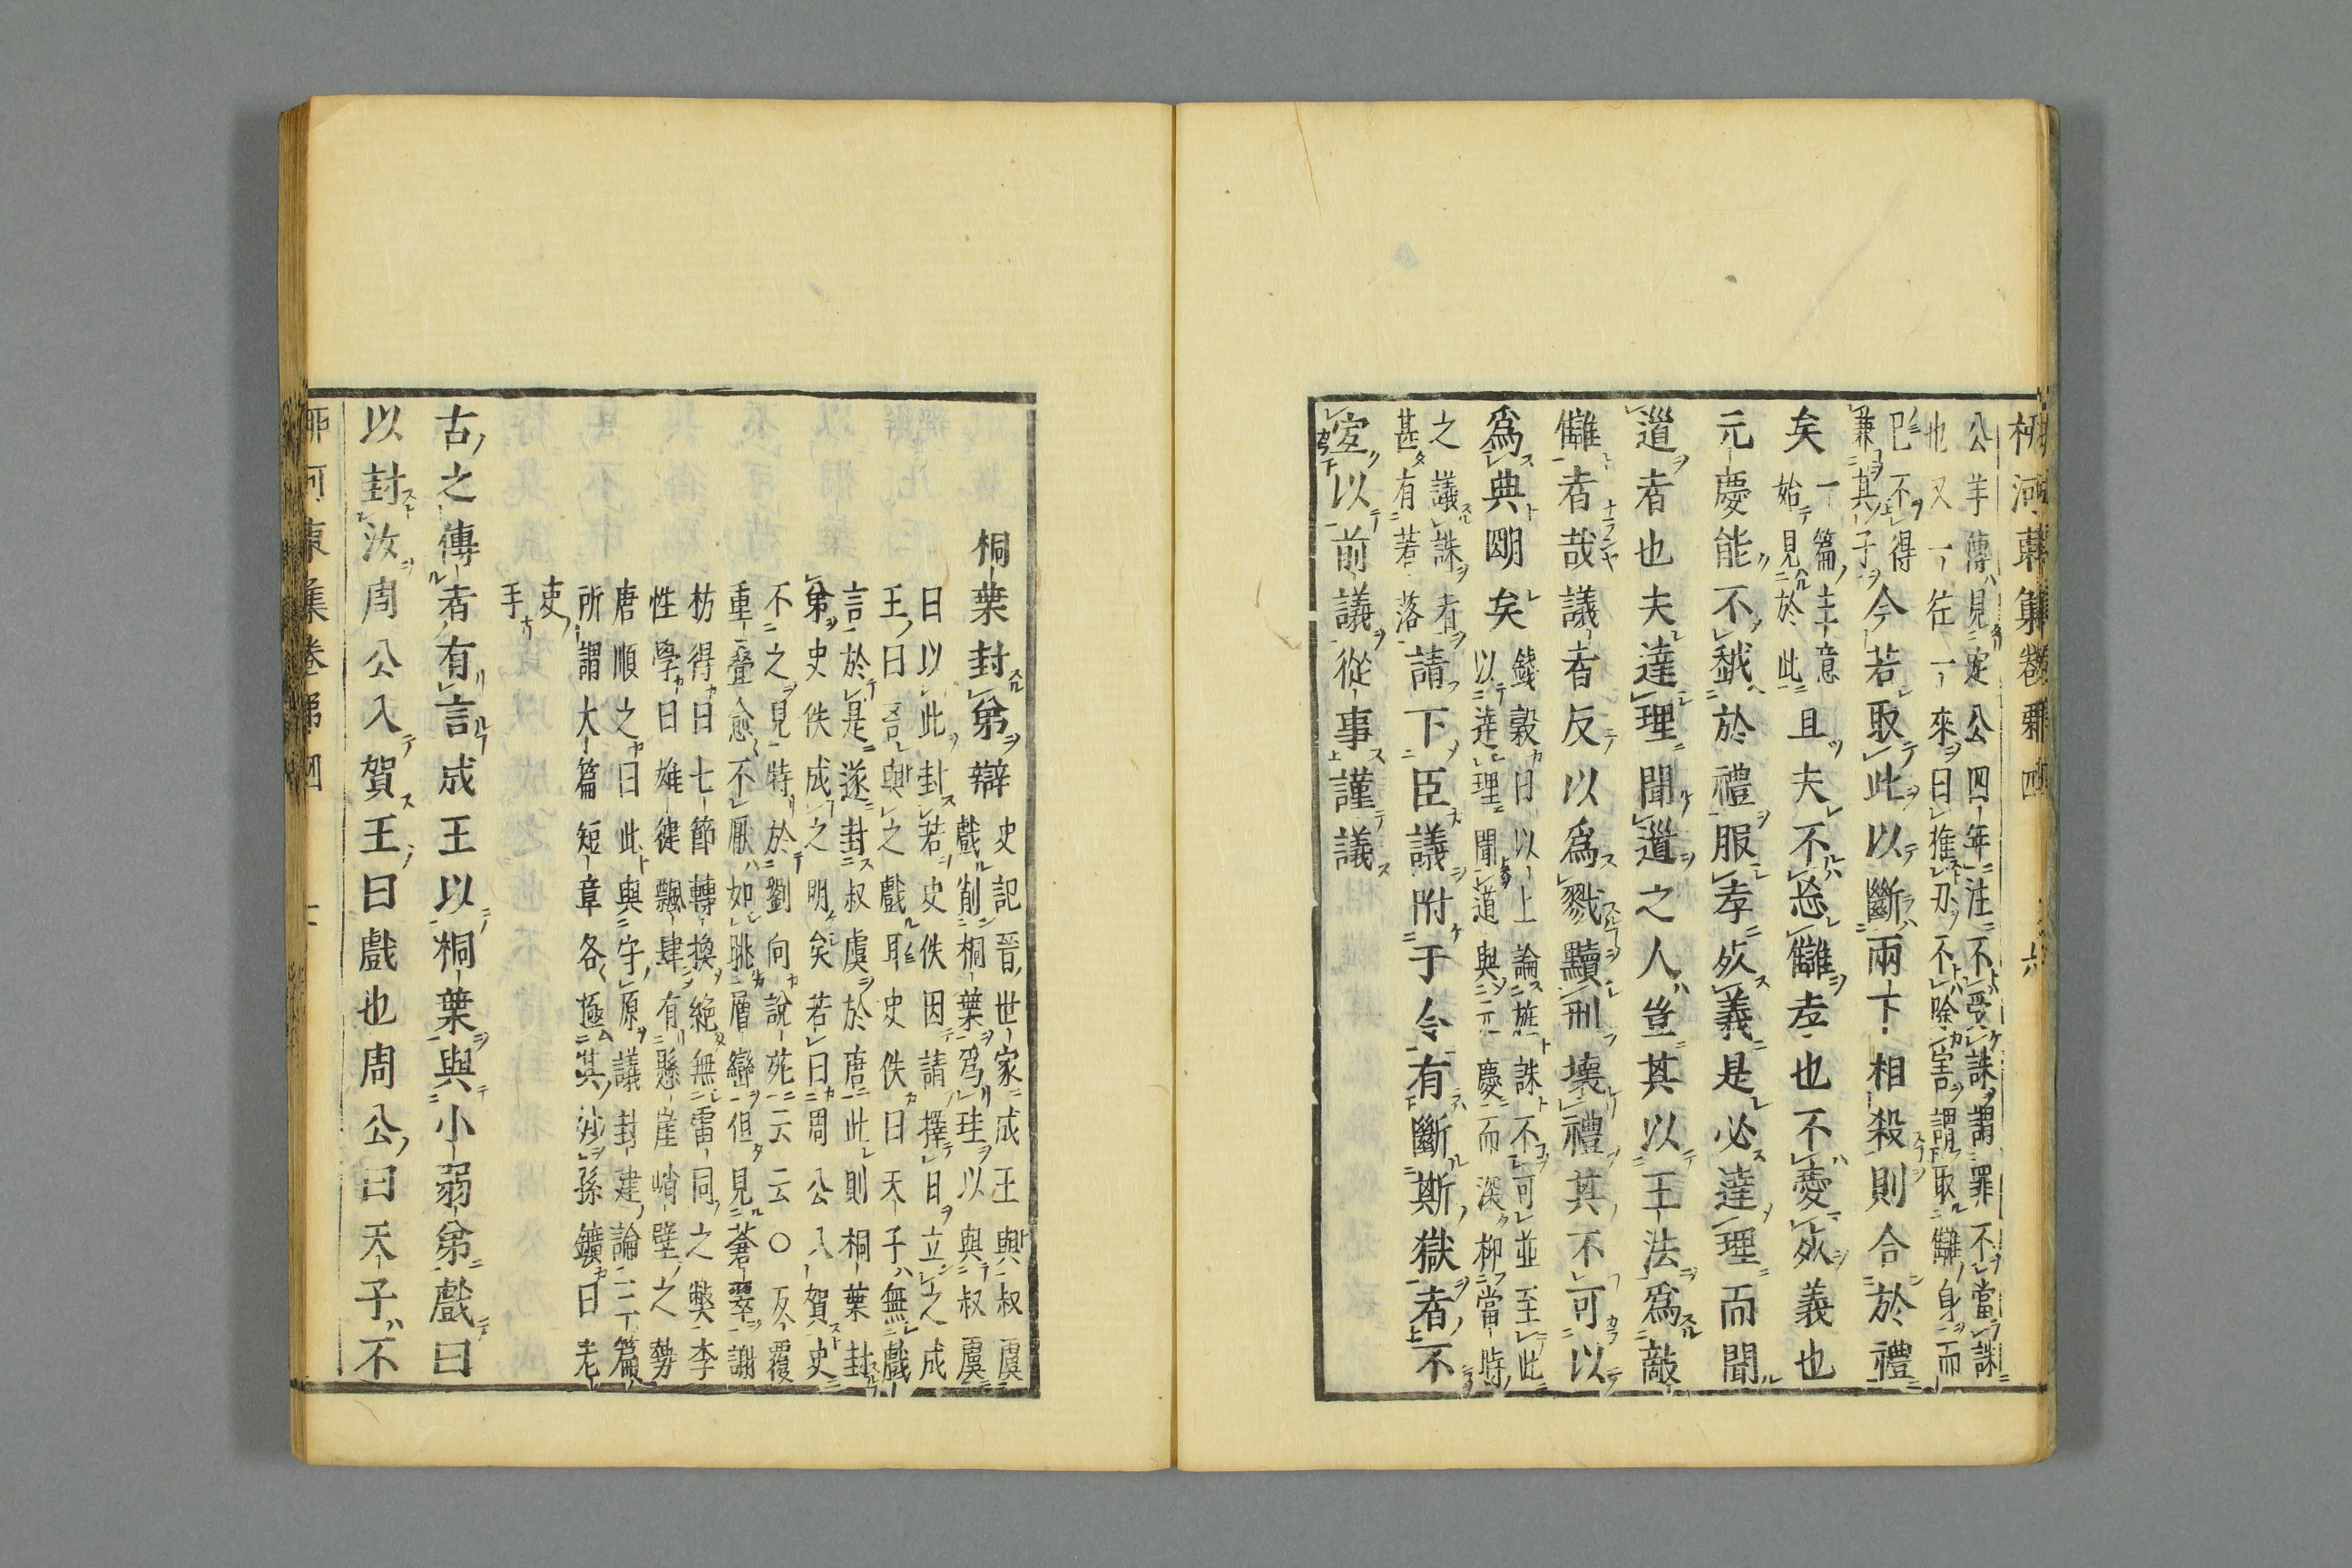 柳河東集卷第四　六
公羊傳見定公四年注不受誅謂罪不當誅
也又一往一來曰推刃不除害謂取讎身而
已不得
兼其子
今若取此以斷兩下相殺則合於禮
矣
一篇主意
始見於此
且夫不忘讎孝也不愛死義也
元慶能不越於禮服孝死義是必達理而聞
道者也夫達理聞道之人豈其以王法爲敵
讎者哉議者反以爲戮黷刑壞禮其不可以
爲典明矣
錢穀曰以上論旌誅不可並至此
以達理聞道與元慶而深抑當時
之議誅者
甚有若落
請下臣議附于令有斷斯獄者不
宜以前議從事謹議
桐葉封弟辯
史記晉世家成王與叔虞
戲削桐葉爲珪以與叔虞
曰以此封若史佚因請擇日立之成
王曰吾與之戲耳史佚曰天子無戲
言於是遂封叔虞於唐此則桐葉封
弟史佚成之明矣若曰周公入賀史
不之見特於劉向說苑云云○反覆
重疊愈不厭如眺層巒但見蒼翠謝
枋得曰七節轉換絶無雷同之弊李
性學曰雄健飄肆有懸崖峭壁之勢
唐順之曰此與守原議封建論二篇
所謂大篇短章各極其妙孫鑛曰老
吏
手
古之傳者有言成王以桐葉與小弱弟戲曰
以封汝周公入賀王曰戲也周公曰天子不
柳河東集卷第四